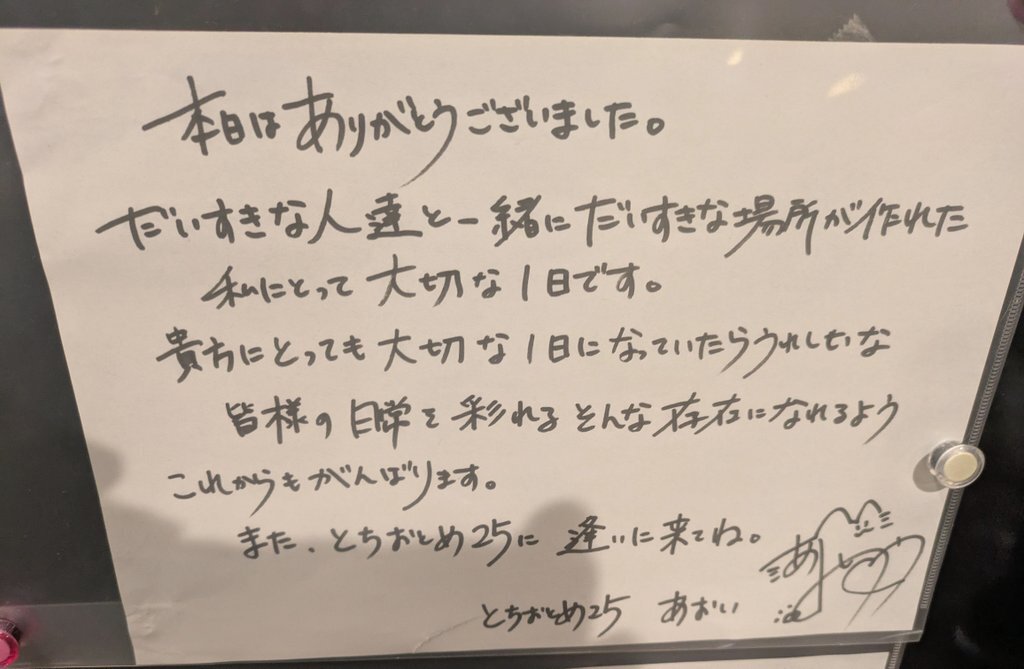 本日はありがとうございました。
だいすきな人達と一緒にだいすきな場所が作れた
私にとって大切な1日です。
貴方にとっても大切な1日になっていたらうれしいな
皆様の日常を彩れるそんな存在になれるよう
これからもがんばります。
また、とちおとめ25に逢いに来てね。
とちおとめ25 あおい